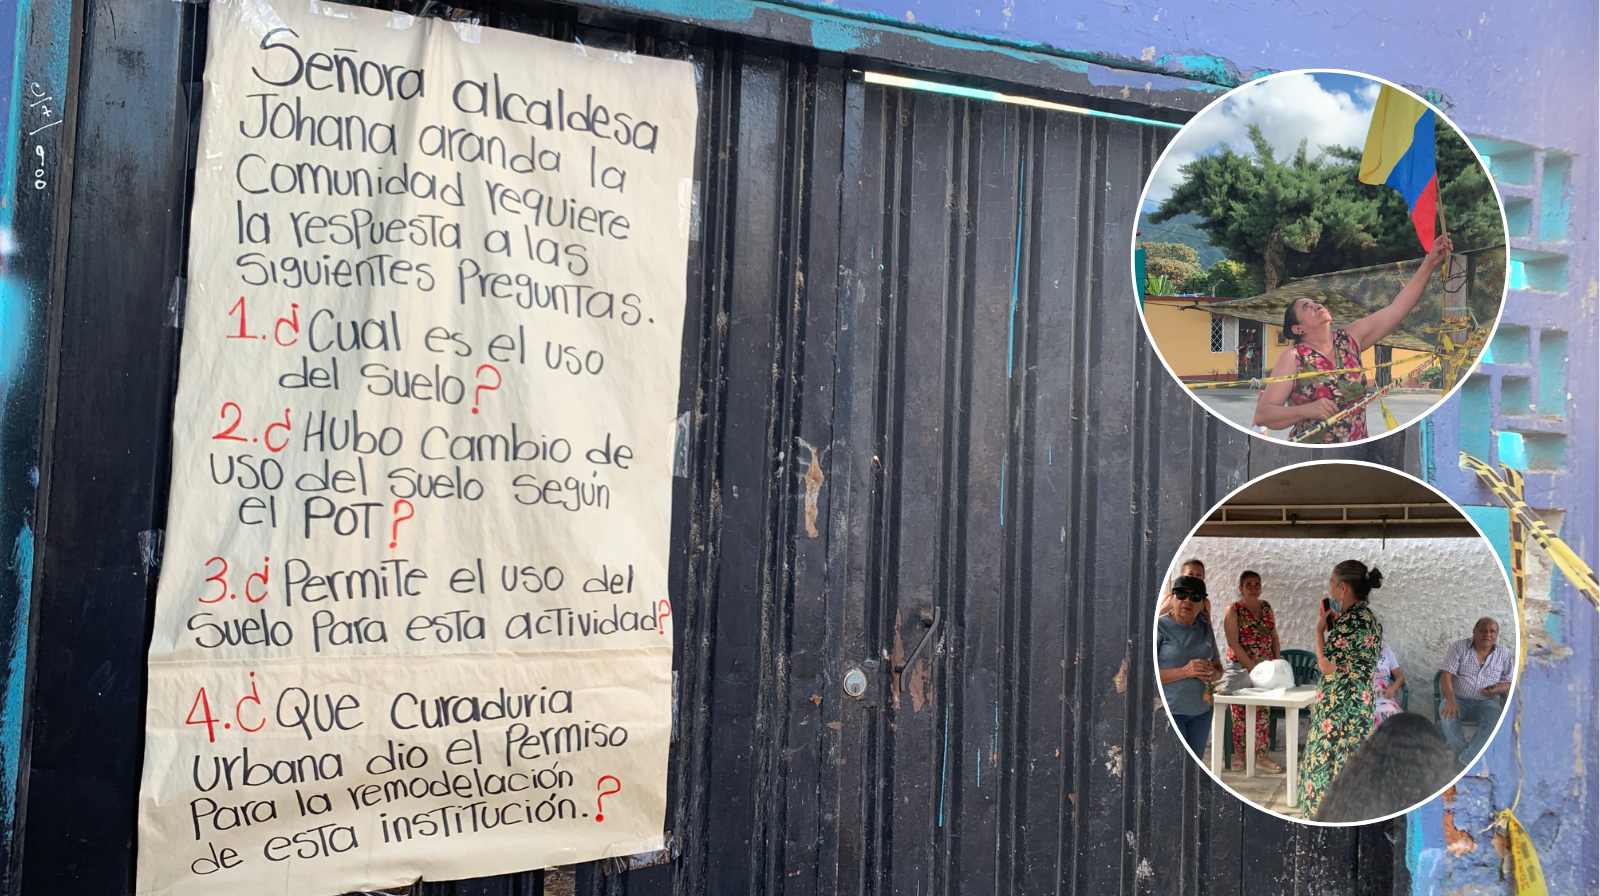 Señora alcaldesa
Johana aranda la
Comunidad requiere
la respuesta a las
siguientes preguntas.
1.¿Cual es el uso
del suelo?
2.¿Hubo Cambio de
uso del suelo según
el POT?
3.¿Permite el uso del
suelo para esta actividad?
4.¿Que Curaduria
urbana dio el permiso
Para la remodelación
de esta institución.?